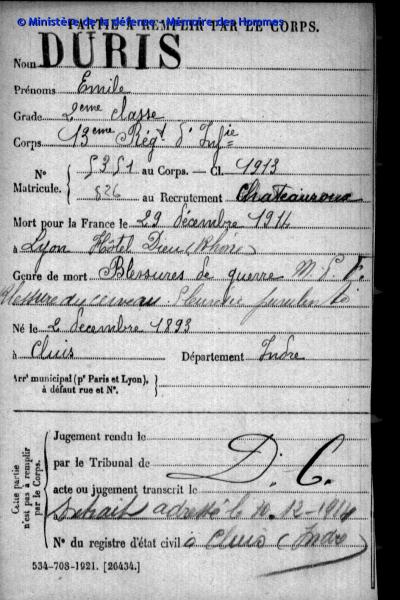 © Ministère de la défense - Mémoire des Hommes
PARTIE A REMPLIR PAR LE CORPS.
Nom DURIS
Prénoms Emile
Grade 2eme classe
Corps 13eme Régt d'Infie
N° 5351 au Corps. — Cl. 1913
Matricule. 826 au Recrutement Chateauroux
Mort pour la France le 29 décembre 1914
à Lyon Hôtel Dieu (Rhone)
Genre de mort Blessures de guerre M. P. F.
Blessure du cerveau. Pleurésie purulente
Né le 2 decembre 1893
à Cluis Département Indre
Arrt municipal (pr Paris et Lyon),
à défaut rue et N°.
Cette partie n'est pas à remplir par le Corps.
Jugement rendu le
par le Tribunal de D. C.
acte ou jugement transcrit le
Extrait adressé le 30-12-1914
N° du registre d'état civil à Cluis (Indre)
534-708-1921. [26434.]